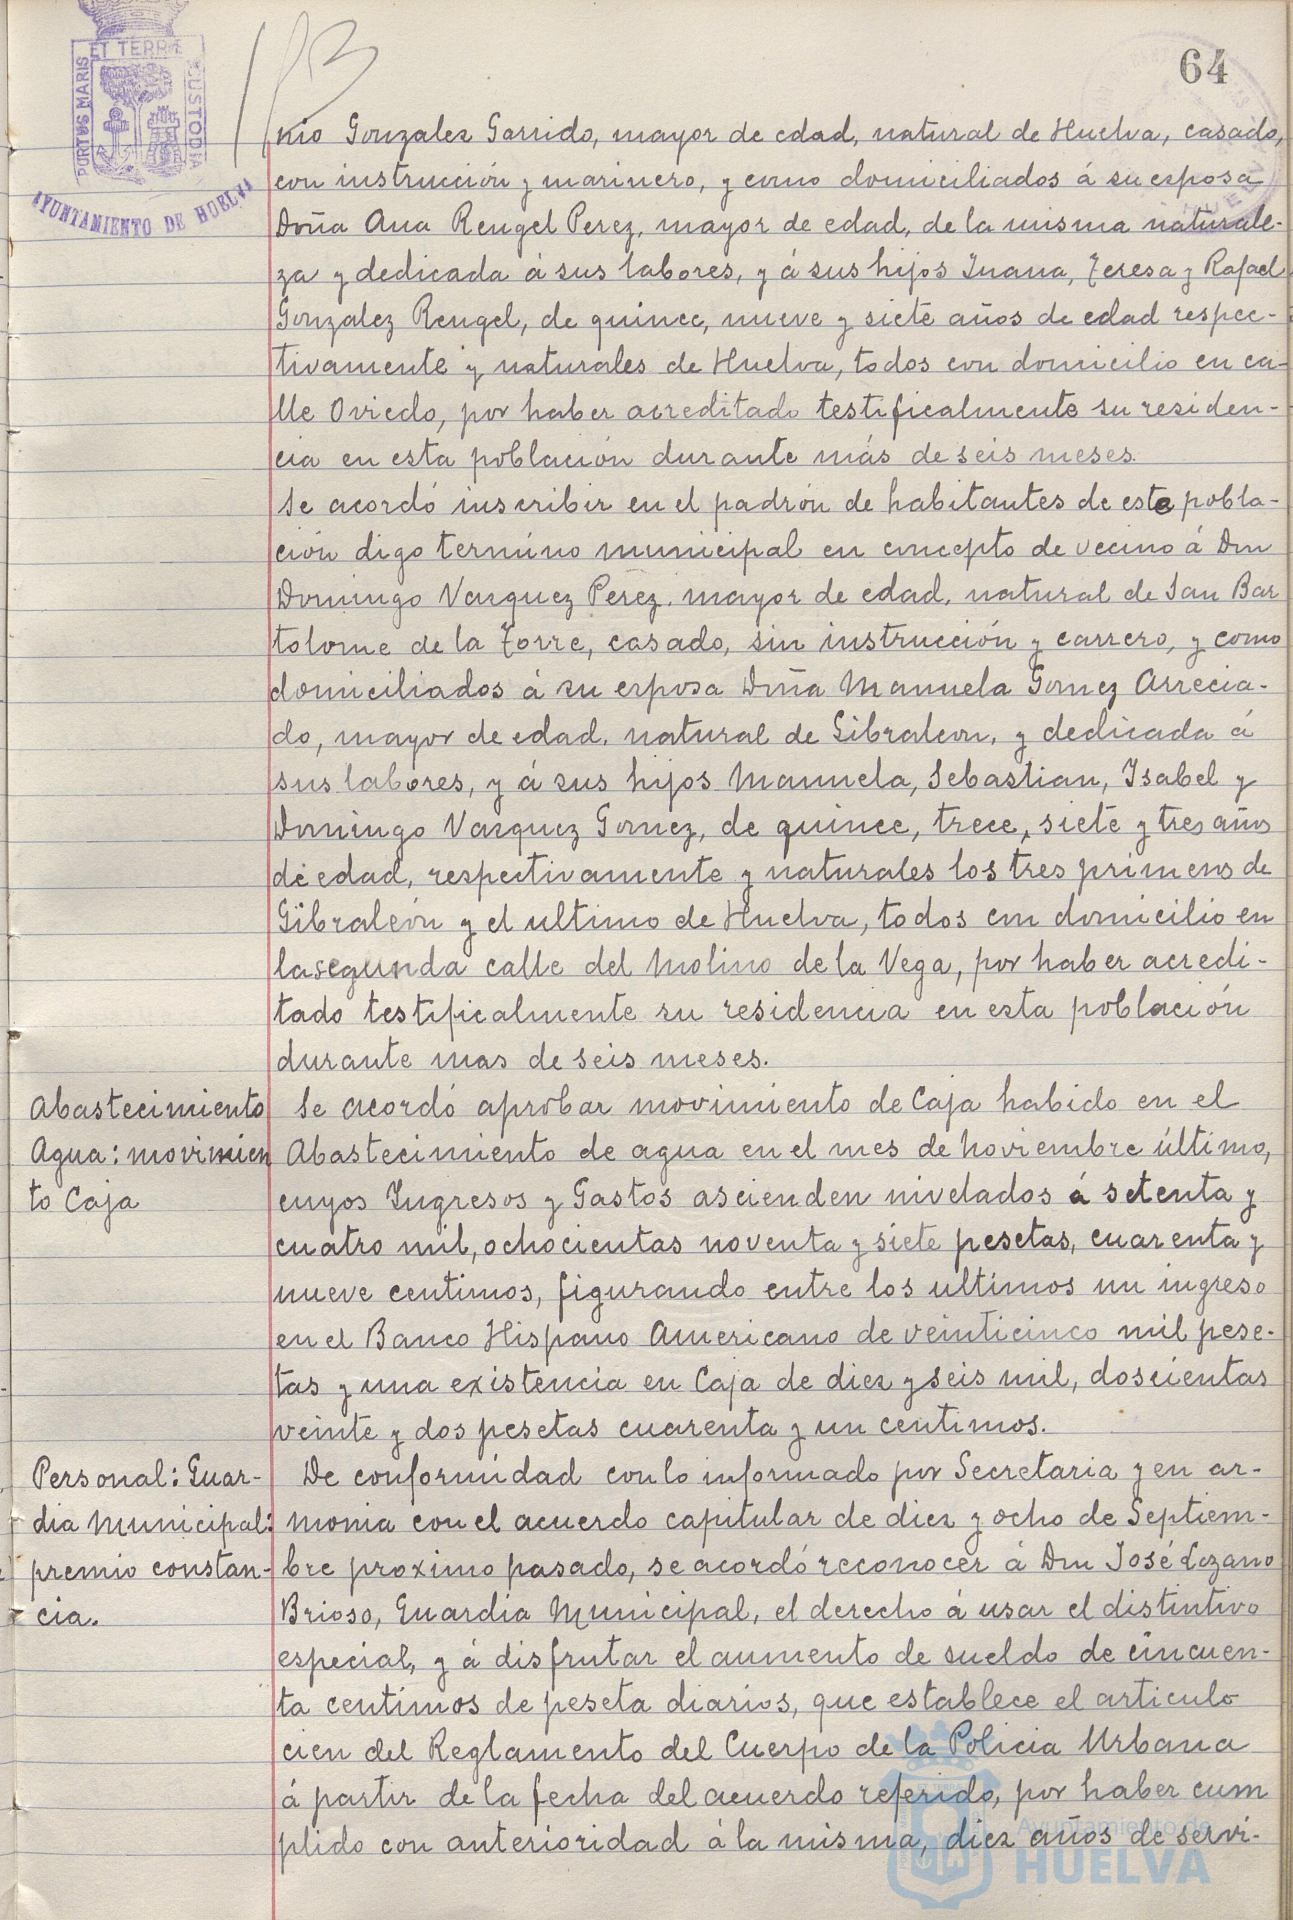 64
PORTUS MARIS ET TERRÆ CUSTODIA
AYUNTAMIENTO DE HUELVA
nio Gonzalez Garrido, mayor de edad, natural de Huelva, casado,
con instrucción y marinero, y como domiciliados á su esposa
Doña Ana Rengel Perez, mayor de edad, de la misma naturale-
za y dedicada á sus labores, y á sus hijos Juana, Teresa y Rafael
Gonzalez Rengel, de quince, nueve y siete años de edad respec-
tivamente y naturales de Huelva, todos con domicilio en ca-
lle Oviedo, por haber acreditado testificalmente su residen-
cia en esta población durante más de seis meses.
Se acordó inscribir en el padrón de habitantes de este pobla-
ción digo termino municipal en concepto de vecino á Don
Domingo Vazquez Perez, mayor de edad, natural de San Bar
tolome de la Torre, casado, sin instrucción y carrero, y como
domiciliados á su esposa Doña Manuela Gomez Arrecia-
do, mayor de edad, natural de Gibraleon, y dedicada á
sus labores, y á sus hijos Manuela, Sebastian, Isabel y
Domingo Vazquez Gomez, de quince, trece, siete y tres años
de edad, respectivamente y naturales los tres primeros de
Gibraleón y el ultimo de Huelva, todos con domicilio en
la segunda calle del Molino de la Vega, por haber acredi-
tado testificalmente su residencia en esta población
durante mas de seis meses.
Abastecimiento
Agua: movimien
to Caja
Se acordó aprobar movimiento de Caja habido en el
Abastecimiento de agua en el mes de noviembre último,
cuyos Ingresos y Gastos ascienden nivelados á setenta y
cuatro mil, ochocientas noventa y siete pesetas, cuarenta y
nueve centimos, figurando entre los ultimos un ingreso
en el Banco Hispano Americano de veinticinco mil pese-
tas y una existencia en Caja de diez y seis mil, doscientas
veinte y dos pesetas cuarenta y un centimos.
Personal: Guar-
dia Municipal:
premio constan-
cia.
De conformidad con lo informado por Secretaria y en ar-
monia con el acuerdo capitular de diez y ocho de Septiem-
bre proximo pasado, se acordó reconocer á Don José Lozano
Brioso, Guardia Municipal, el derecho á usar el distintivo
especial, y á disfrutar el aumento de sueldo de cincuen-
ta centimos de peseta diarios, que establece el articulo
cien del Reglamento del Cuerpo de la Policia Urbana
á partir de la fecha del acuerdo referido, por haber cum
plido con anterioridad á la misma, diez años de servi-
Ayuntamiento de
HUELVA